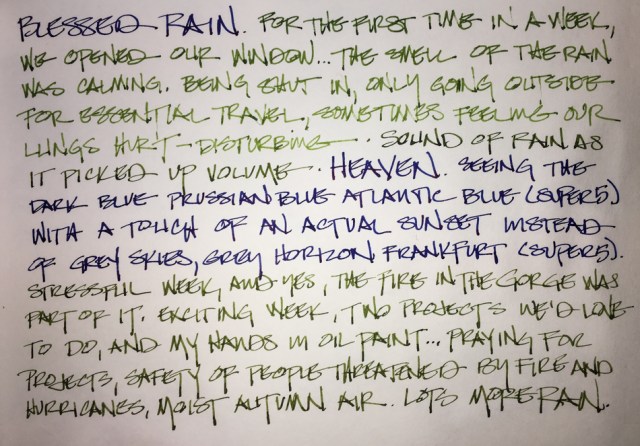 BLESSED RAIN. FOR THE FIRST TIME IN A WEEK,
WE OPENED OUR WINDOW... THE SMELL OF THE RAIN
WAS CALMING. BEING SHUT IN, ONLY GOING OUTSIDE
FOR ESSENTIAL TRAVEL, SOMETIMES FEELING OUR
LUNGS HURT - DISTURBING. SOUND OF RAIN AS
IT PICKED UP VOLUME. HEAVEN. SEEING THE
DARK BLUE PRUSSIAN BLUE ATLANTIC BLUE (SUPER5)
WITH A TOUCH OF AN ACTUAL SUNSET INSTEAD
OF GREY SKIES, GREY HORIZON FRANKFURT (SUPER5).
STRESSFUL WEEK, AND YES, THE FIRE IN THE GORGE WAS
PART OF IT. EXCITING WEEK, TWO PROJECTS WE'D LOVE
TO DO, AND MY HANDS IN OIL PAINT... PRAYING FOR
PROJECTS, SAFETY OF PEOPLE THREATENED BY FIRE AND
HURRICANES, MOIST AUTUMN AIR. LOTS MORE RAIN.